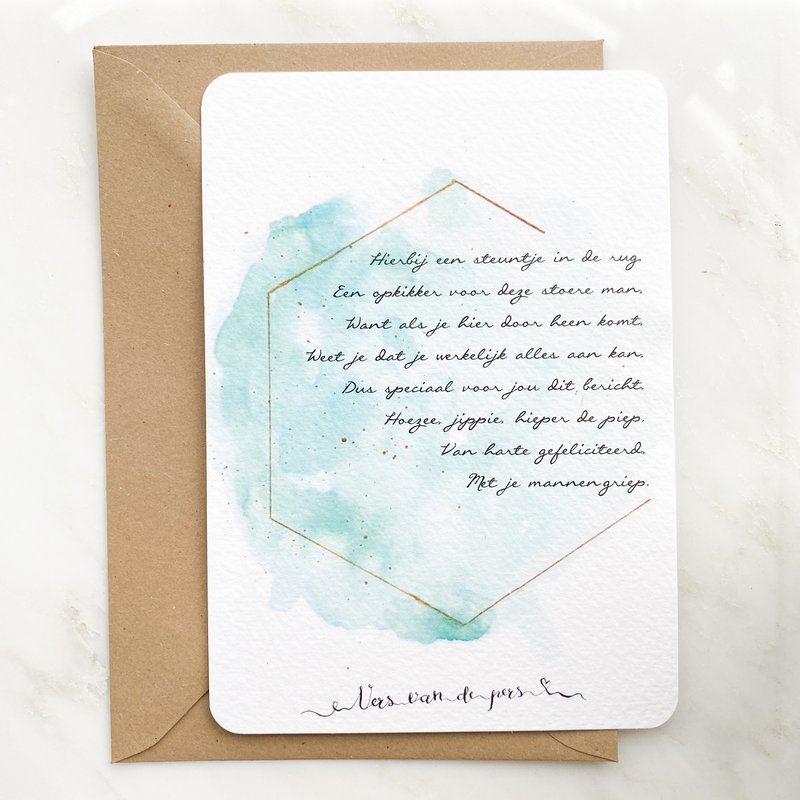 Hierbij een steuntje in de rug.
Een opkikker voor deze stoere man,
Want als je hier door heen komt,
Weet je dat je werkelijk alles aan kan,
Dus speciaal voor jou dit bericht,
Hoezee, jippie, hieper de piep.
Van harte gefeliciteerd,
Met je mannengriep.
Vers van de pers